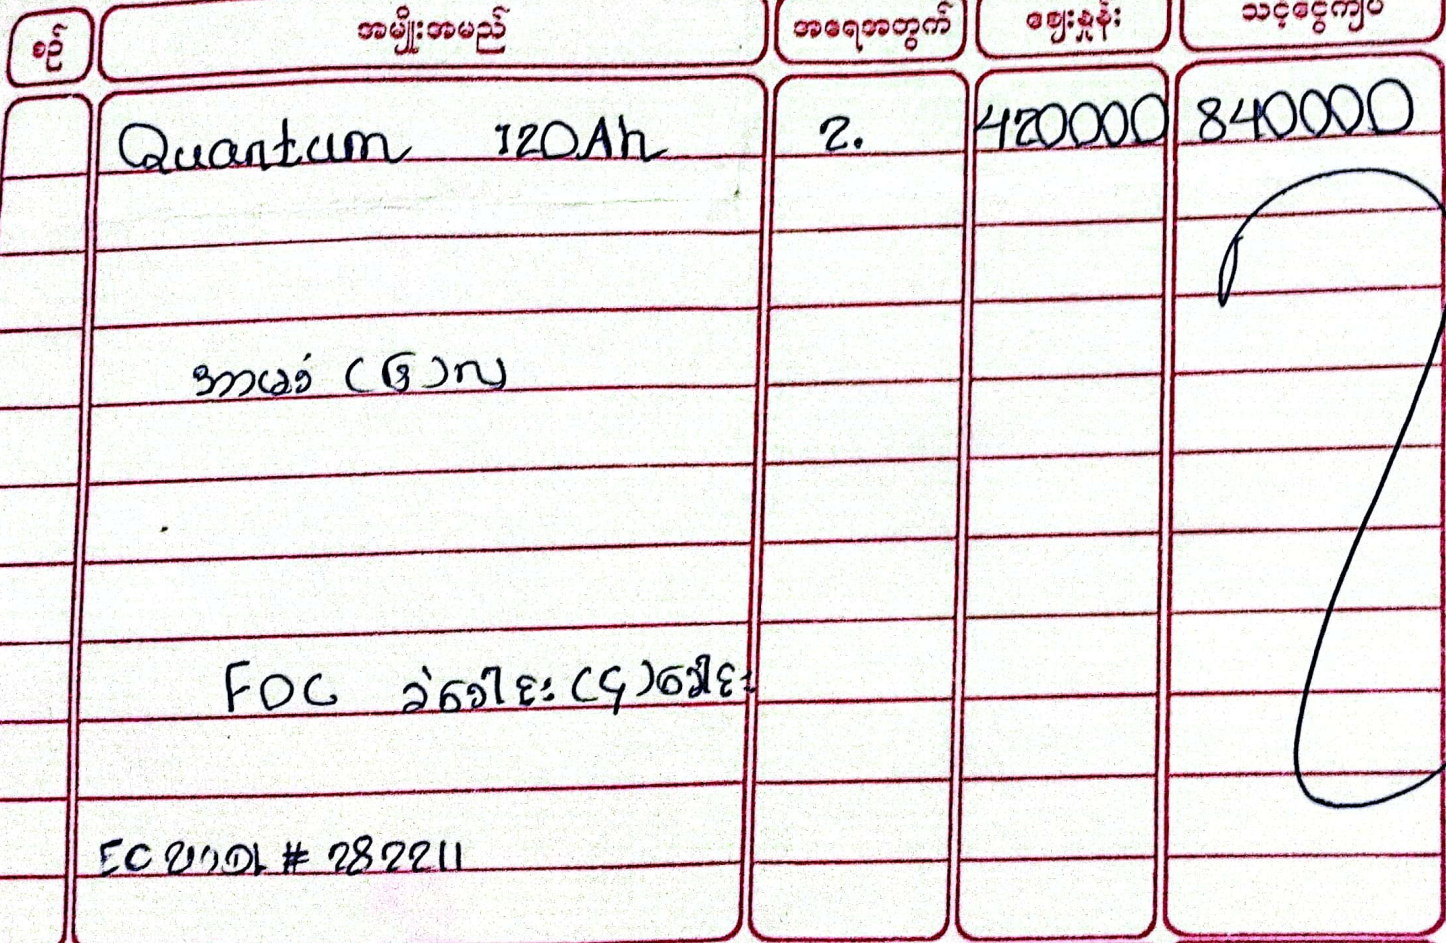 စဉ် အမျိုးအမည် အရေအတွက် ဈေးနှုန်း သင့်ငွေကျပ်
Quantum 120Ah 2. 420000 840000
အာမခံ (၆)လ
FOC ခဲခေါင်း (၄)ခေါင်း
# 282211